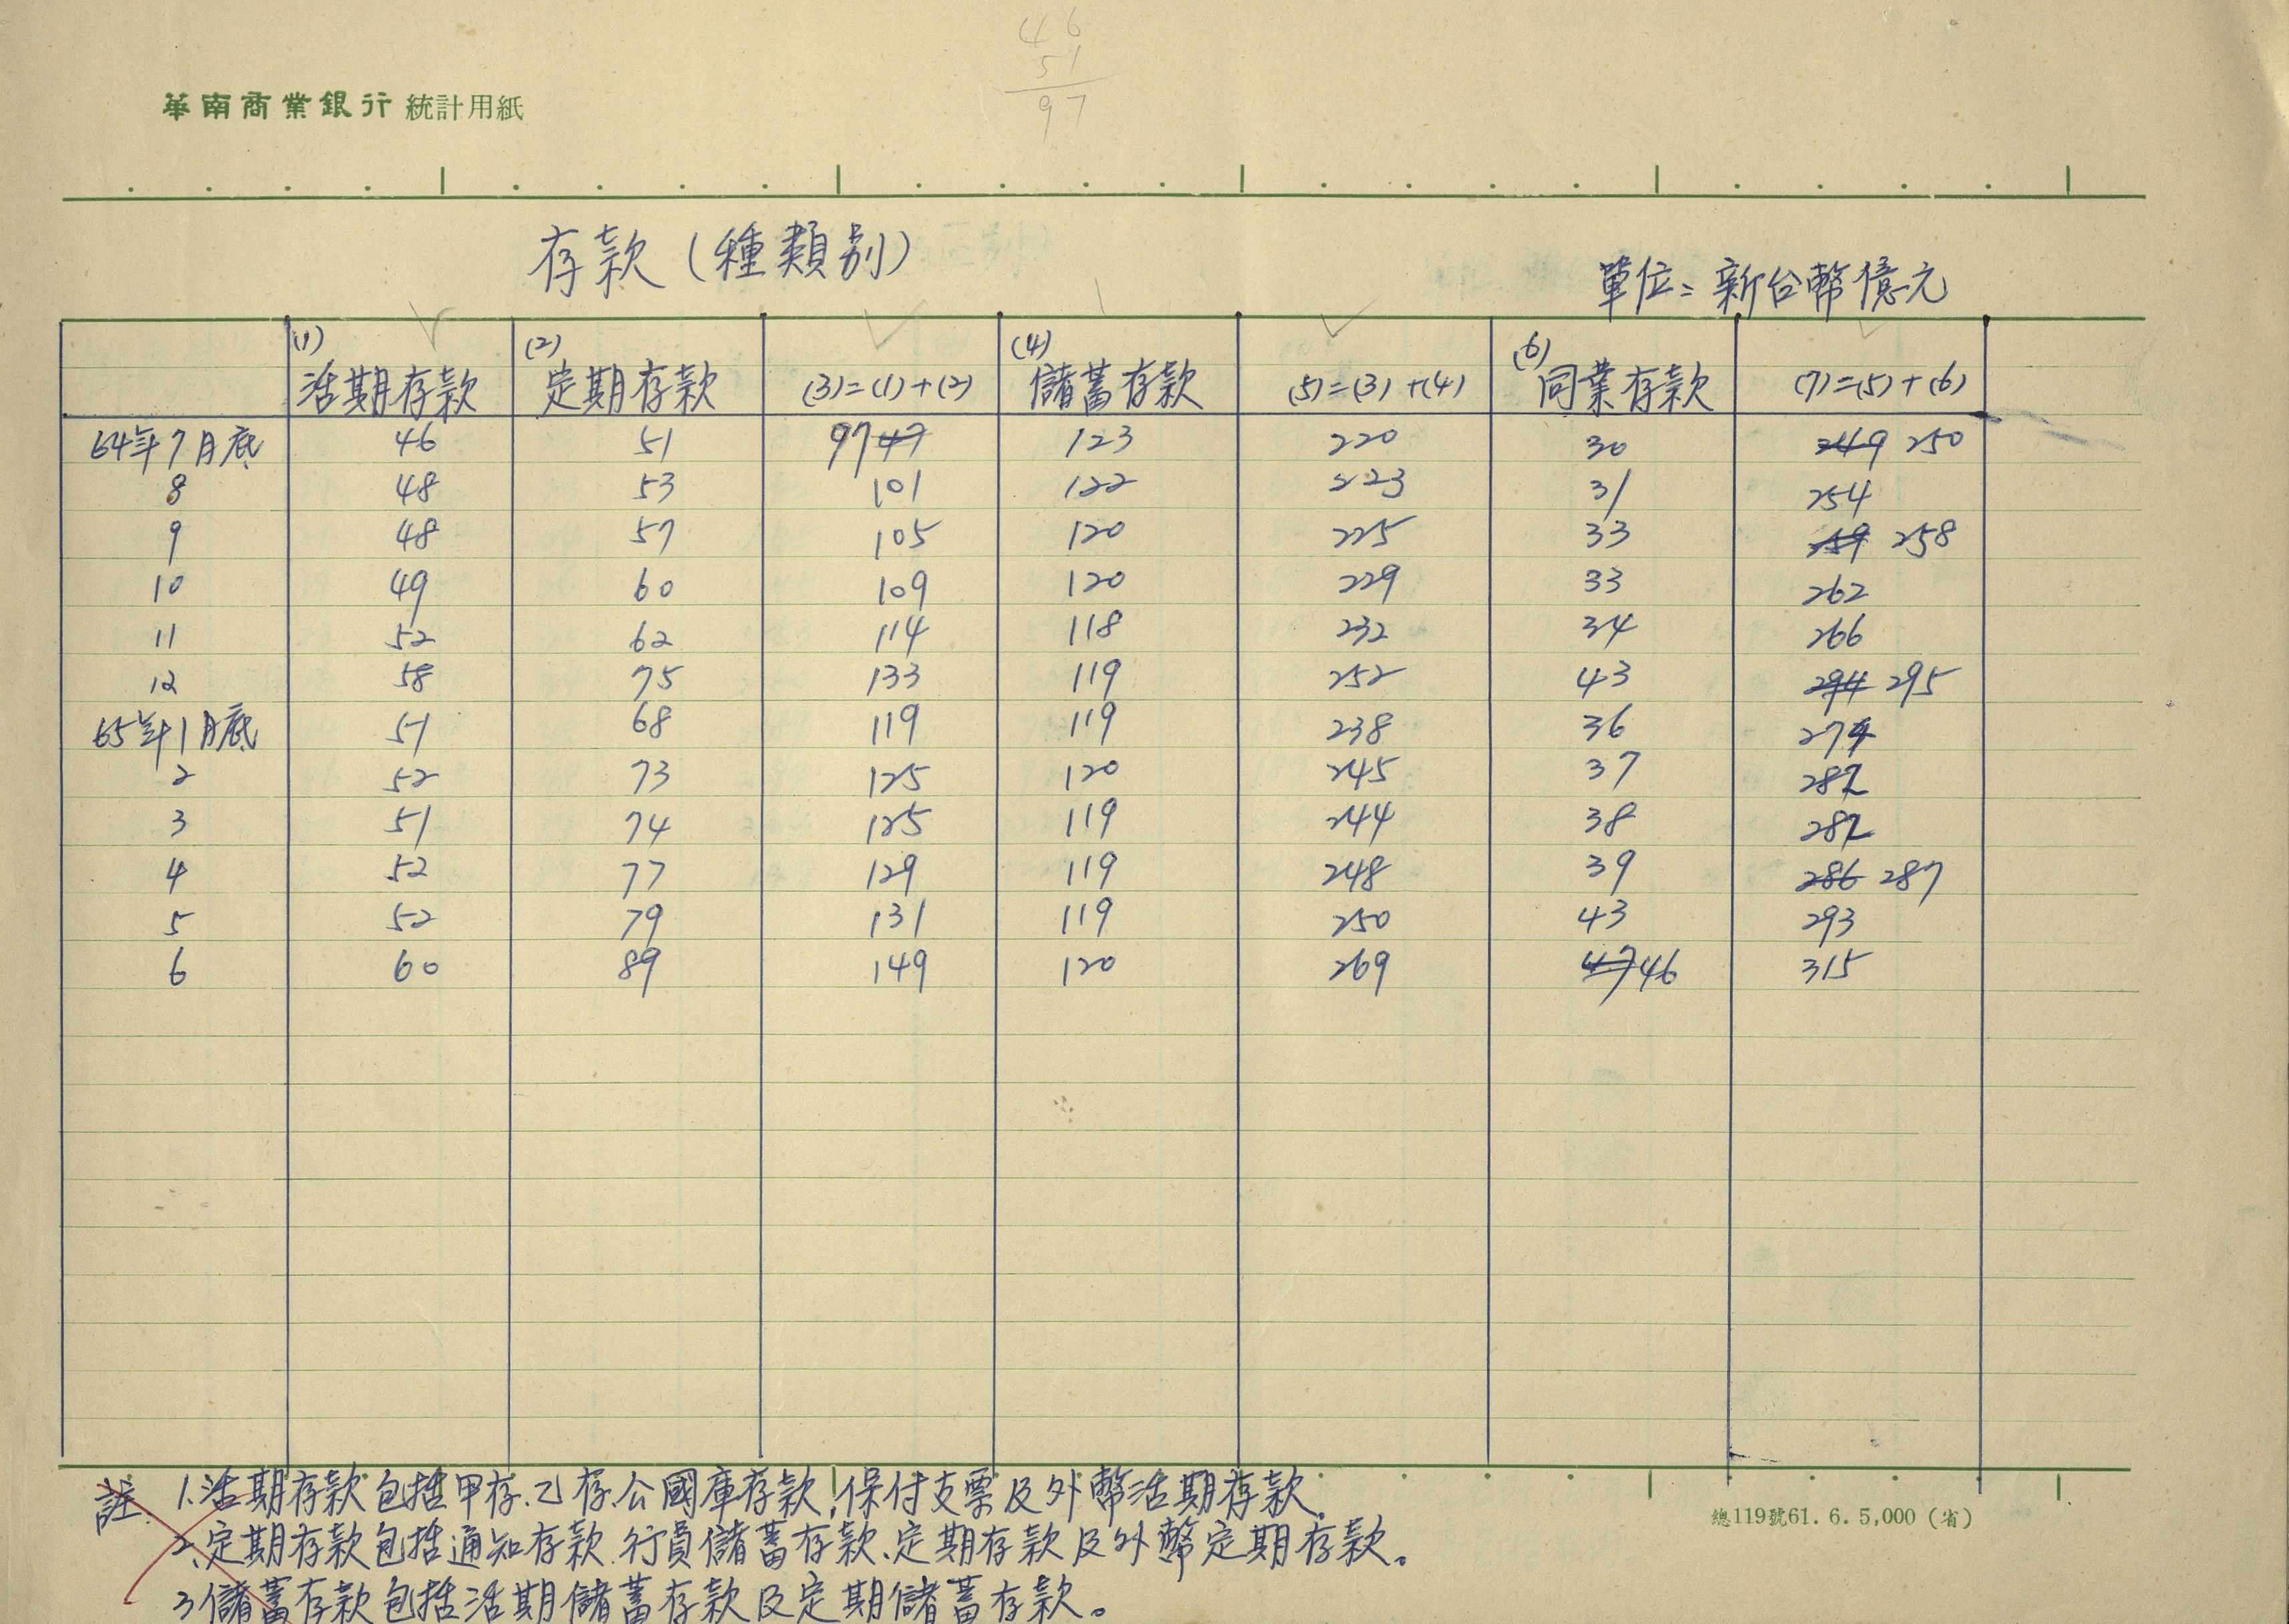 46
51
97
華南商業銀行 統計用紙
存款（種類別）
單位：新台幣億元
(1) 活期存款 (2) 定期存款 (3)=(1)+(2) (4) 儲蓄存款 (5)=(3)+(4) (6) 同業存款 (7)=(5)+(6)
64年7月底 46 51 97 47 123 220 30 249 250
8 48 53 101 122 223 31 254
9 48 57 105 120 225 33 259 258
10 49 60 109 120 229 33 262
11 52 62 114 118 232 34 266
12 58 75 133 119 252 43 294 295
65年1月底 51 68 119 119 238 36 274
2 52 73 125 120 245 37 282
3 51 74 125 119 244 38 282
4 52 77 129 119 248 39 286 287
5 52 79 131 119 250 43 293
6 60 89 149 120 269 47 46 315
註. 1.活期存款包括甲存、乙存、公國庫存款、保付支票及外幣活期存款。
2.定期存款包括通知存款、行員儲蓄存款、定期存款及外幣定期存款。
3.儲蓄存款包括活期儲蓄存款及定期儲蓄存款。
總119號61. 6. 5,000（省）